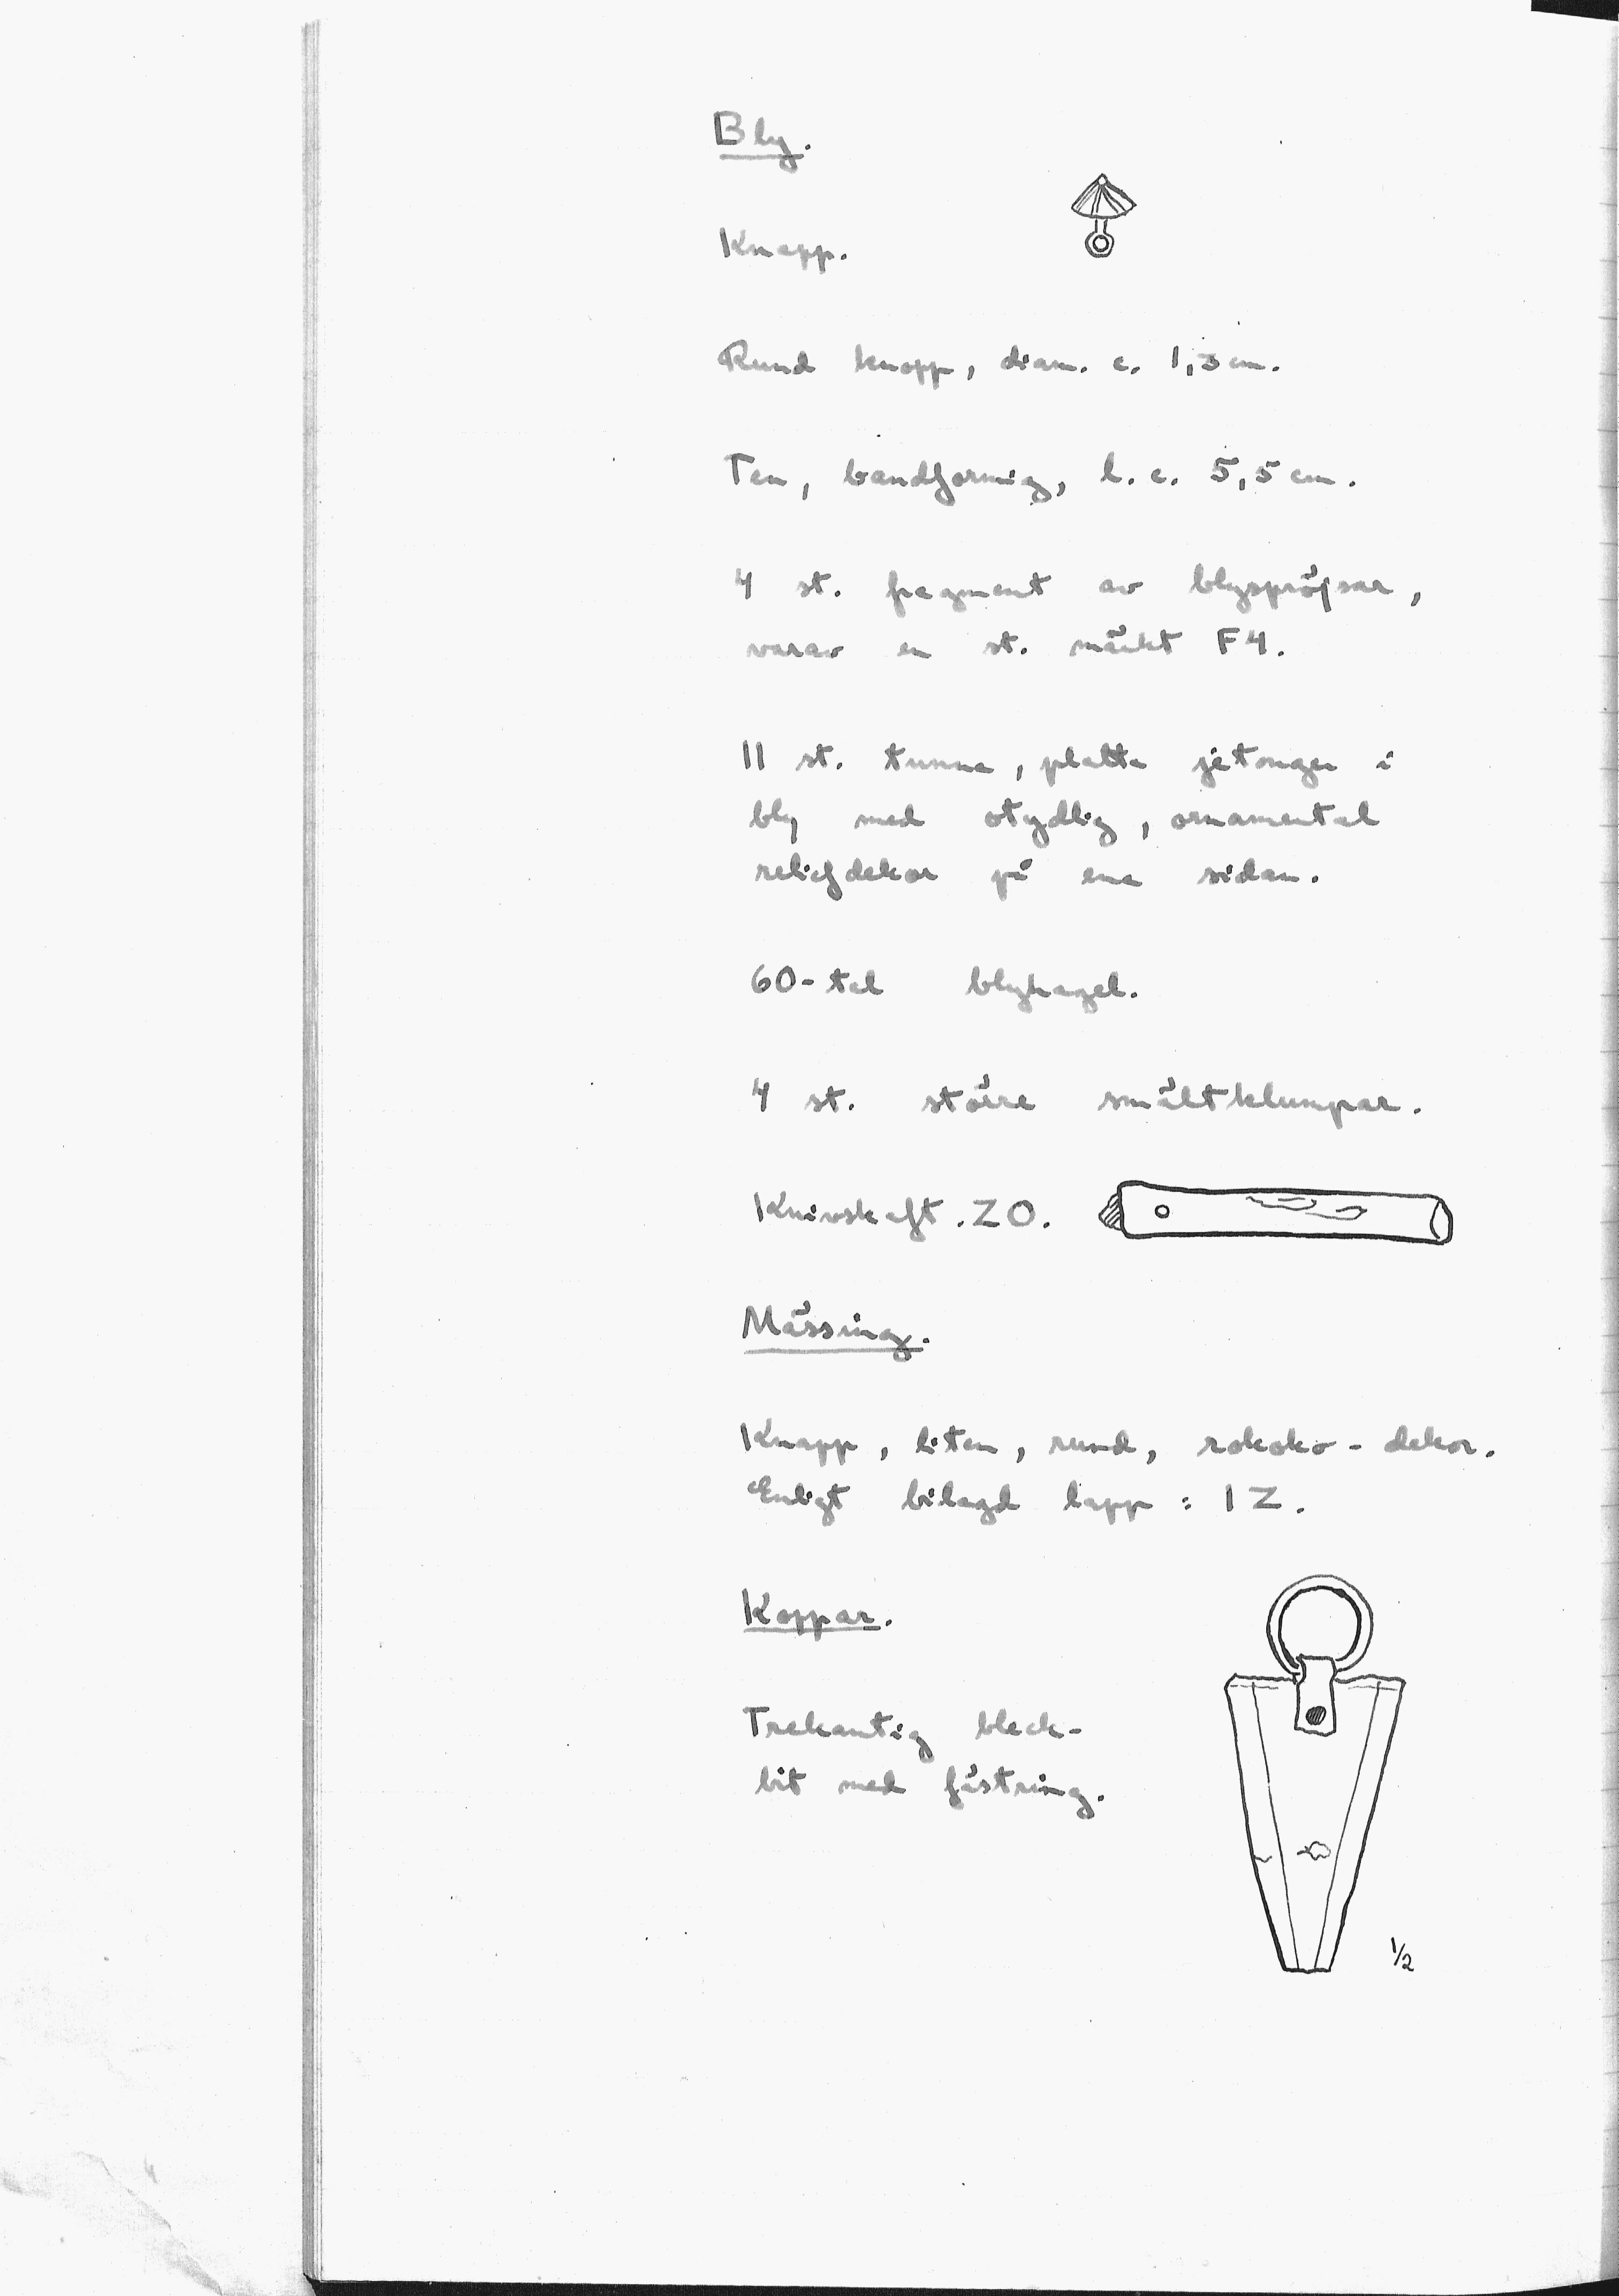 Bly.
Knapp.
Rund knopp, diam. c. 1,3 cm.
Ten, bandformig, l. c. 5,5 cm.
4 st. fragment av blyspröjsar,
varav en st. märkt F4.
11 st. tunna, platta jetonger i
bly med otydlig, ornamental
reliefdekor på ena sidan.
60-tal blyhagel.
4 st. större smältklumpar.
Knivskaft. ZO.
Mässing.
Knapp, liten, rund, rokoko-dekor.
Enligt bilagd lapp: 1Z.
Koppar.
Trekantig bleck-
bit med fästring.
1/2